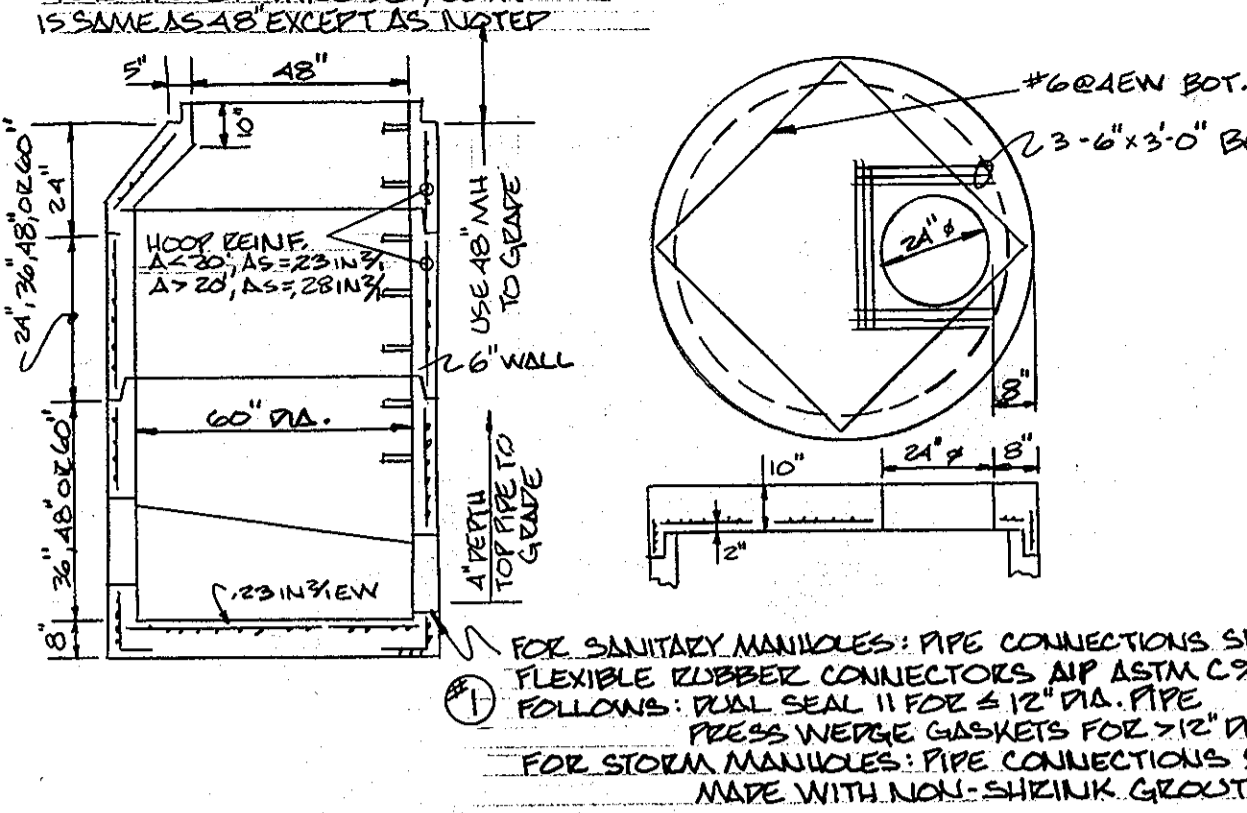 IS SAME AS 48" EXCEPT AS NOTED
5"
48"
10"
24"
24", 36", 48", OR 60"
HOOP REINF.
A<20', AS=.23 IN²/,
A>20', AS=.28 IN²/,
USE 48" MH
TO GRADE
6" WALL
60" DIA.
36", 48" OR 60"
"A" DEPTH
TOP PIPE TO
GRADE
.23 IN²/, EW
8"
#6@4EW BOT.
3-6"x3'-0" B
24"ø
8"
10"
24"ø
8"
2"
FOR SANITARY MANHOLES: PIPE CONNECTIONS
#1
FLEXIBLE RUBBER CONNECTORS AIP ASTM C9
FOLLOWS: DUAL SEAL II FOR ≤ 12" DIA. PIPE
PRESS WEDGE GASKETS FOR >12" D
FOR STORM MANHOLES: PIPE CONNECTIONS
MADE WITH NON-SHRINK GROUT